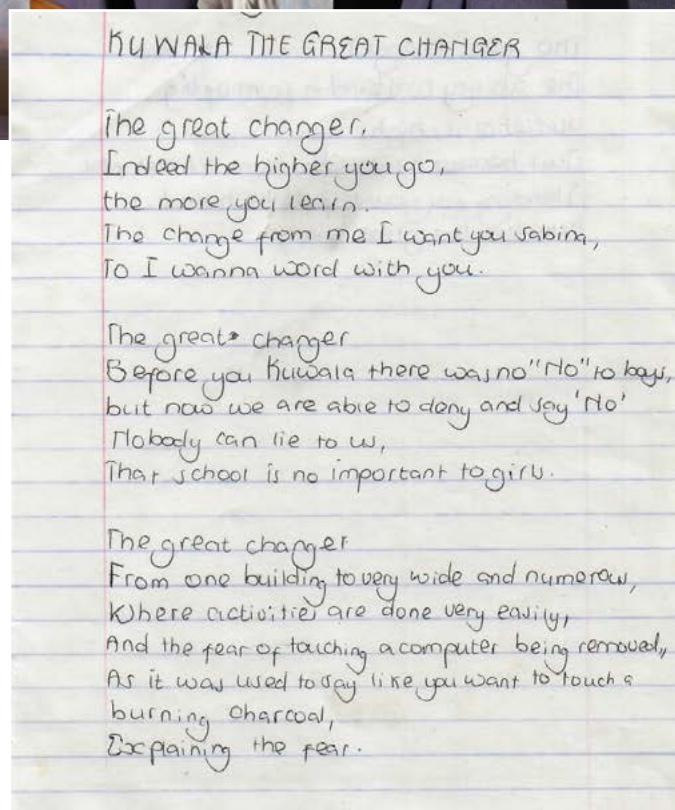 KUWALA THE GREAT CHANGER
The great changer,
Indeed the higher you go,
the more you learn.
The change from me I want you Sabina,
To I wanna word with you.
The great changer
Before you Kuwala there was no "No" to boys,
but now we are able to deny and say 'No'
Nobody can lie to us,
That school is no important to girls.
The great changer
From one building to very wide and numerous,
Where activities are done very easily,
And the fear of touching a computer being removed,
As it was used to say like you want to touch a
burning charcoal,
Explaining the fear.